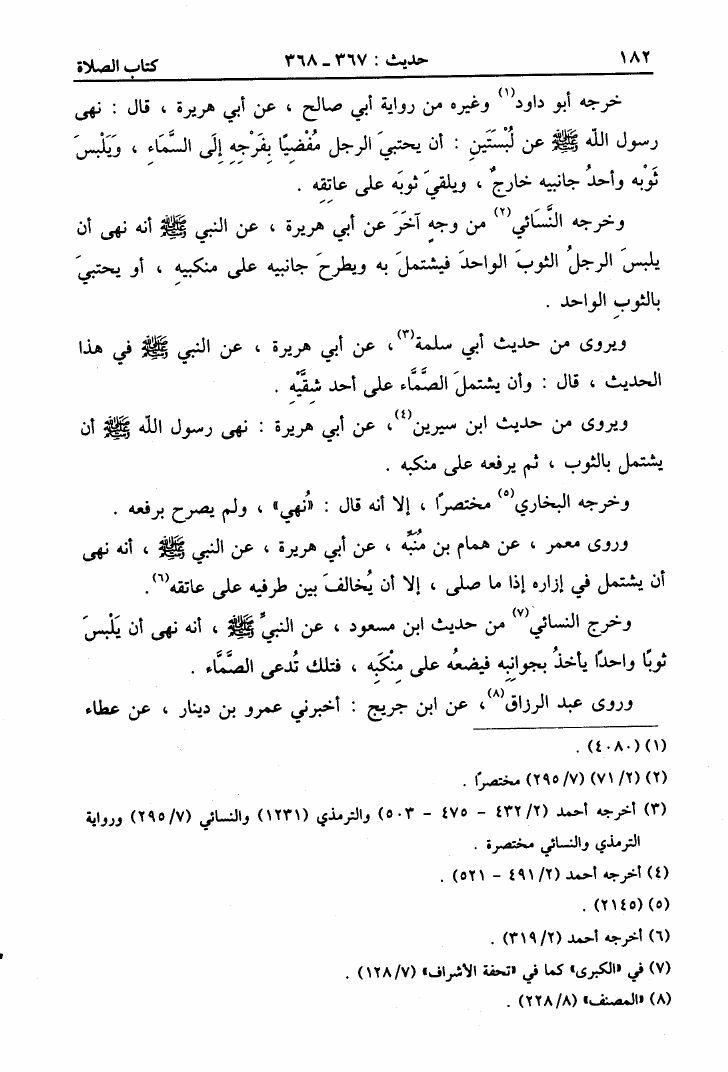 ١٨٢ حديث : ٣٦٧ ـ ٣٦٨ كتاب الصلاة
خرجه أبو داود(١) وغيره من رواية أبي صالح ، عن أبي هريرة ، قال : نهى
رسول الله ﷺ عن لُبْسَتَينِ : أن يحتبيَ الرجل مُفْضِيًا بِفَرْجِهِ إِلَى السَّمَاءِ ، وَيَلْبسَ
ثَوْبَه وأحدُ جانبيه خارجٌ ، ويلقيَ ثوبَه على عاتِقِه .
وخرجه النَّسَائي(٢) من وجهٍ آخَرَ عن أبي هريرة ، عن النبي ﷺ أنه نهى أن
يلبسَ الرجلُ الثوبَ الواحدَ فيشتملَ به ويطرحَ جانبيه على منكبيهِ ، أو يحتبيَ
بالثوبِ الواحد .
ويروى من حديث أبي سلمة(٣)، عن أبي هريرة ، عن النبي ﷺ في هذا
الحديث ، قال : وأن يشتملَ الصَّمَّاء على أحد شِقَّيْهِ .
ويروى من حديث ابن سيرين(٤)، عن أبي هريرة : نهى رسول الله ﷺ أن
يشتمل بالثوب ، ثم يرفعه على منكبه .
وخرجه البخاري(٥) مختصرًا ، إلا أنه قال : «نُهي» ، ولم يصرح برفعه .
وروى معمر ، عن همام بن مُنَبِّه ، عن أبي هريرة ، عن النبي ﷺ ، أنه نهى
أن يشتمل في إزاره إذا ما صلى ، إلا أن يُخالفَ بين طرفيه على عاتقه(٦).
وخرج النسائي(٧) من حديث ابن مسعود ، عن النبيِّ ﷺ ، أنه نهى أن يَلْبسَ
ثوبًا واحدًا يأخذُ بجوانِبِه فيضعُه على مِنْكَبِه ، فتلك تُدعى الصَّمَّاء .
وروى عبد الرزاق(٨)، عن ابن جريج : أخبرني عمرو بن دينار ، عن عطاء
(١) (٤٠٨٠) .
(٢) (٧١/٢) (٢٩٥/٧) مختصرًا .
(٣) أخرجه أحمد (٤٣٢/٢ - ٤٧٥ - ٥٠٣) والترمذي (١٢٣١) والنسائي (٢٩٥/٧) ورواية
الترمذي والنسائي مختصرة .
(٤) أخرجه أحمد (٤٩١/٢ - ٥٢١) .
(٥) (٢١٤٥) .
(٦) أخرجه أحمد (٣١٩/٢) .
(٧) في «الكبرى» كما في «تحفة الأشراف» (١٢٨/٧) .
(٨) «المصنف» (٢٢٨/٨) .